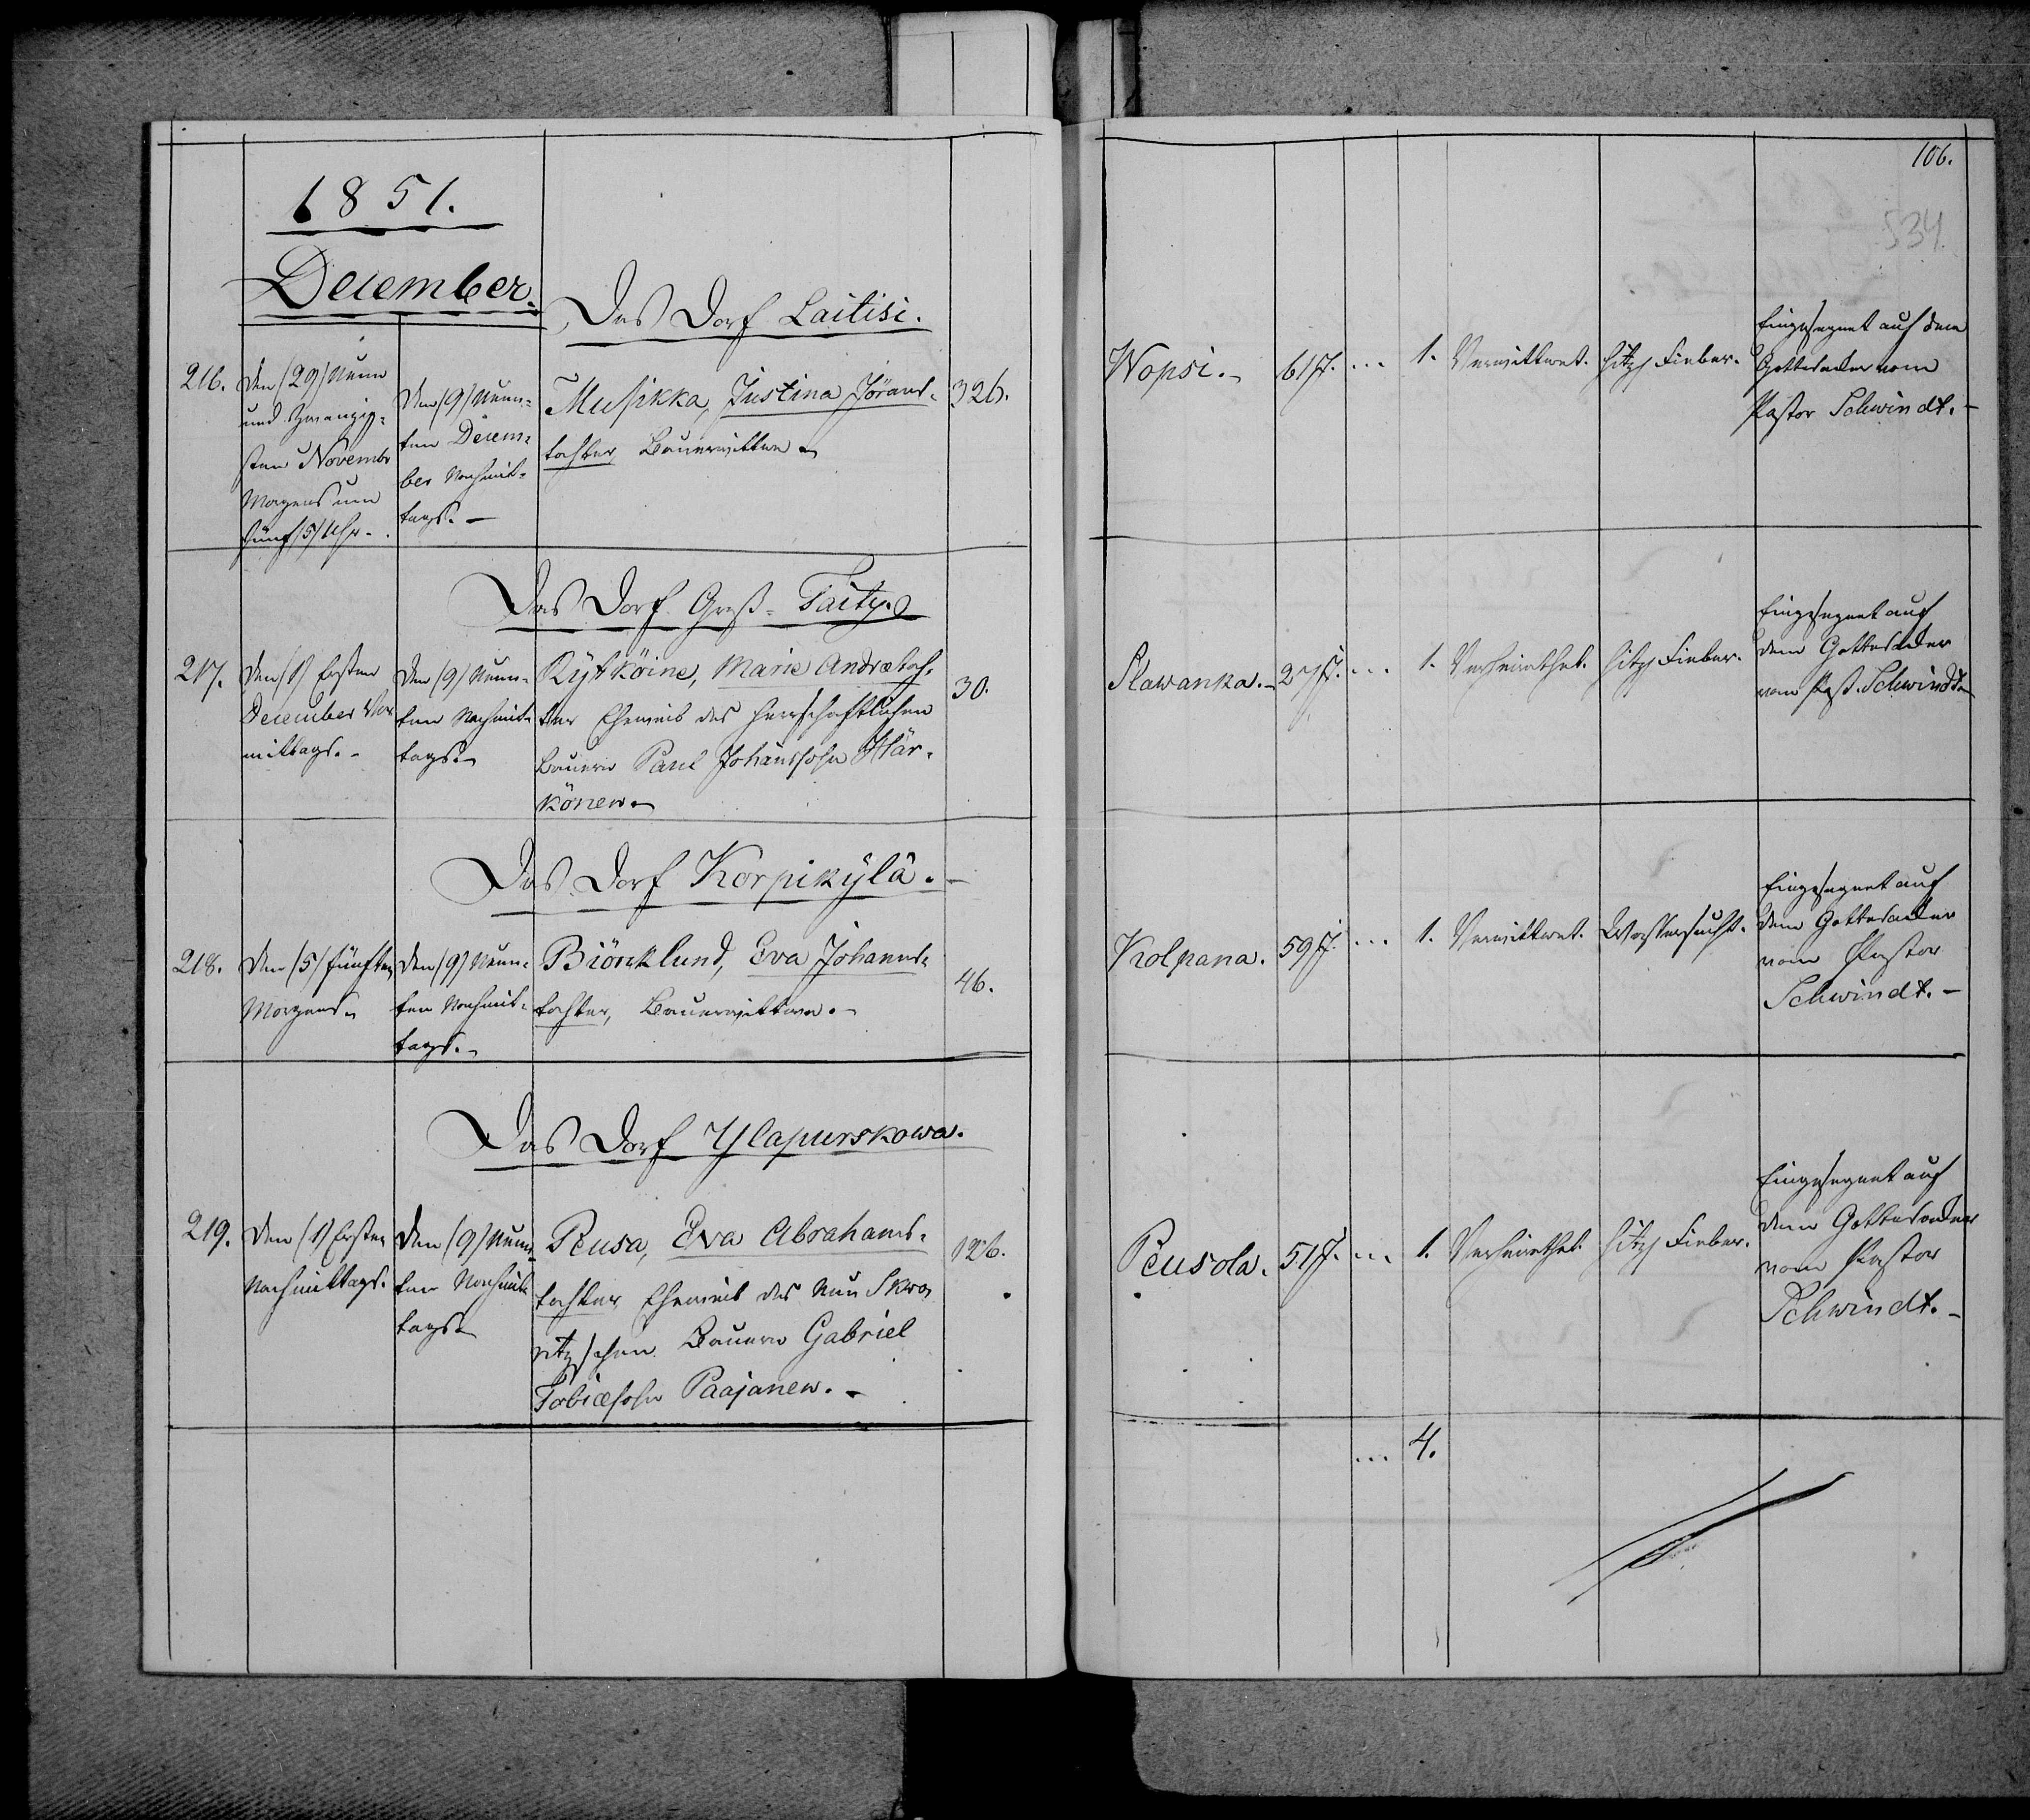 1851.
December.
Das Dorf Laitisi.
216.
Den (29) Neun
und Zwanzig-
sten Novembr
Morgens um
fünf (5) Uhr.
Den (9) Neun-
ten Decem-
ber Nachmit-
tags.
Musikka, Justina Jörans-
tochter Bauerwittwe
326.
Das Dorf Groß-Taity.
217.
Den (1) Ersten
December Vor
mittags.
Den (9) Neun-
ten Nachmit-
tags.
Rytköine, Marie Andreætoch-
ter Eheweib des herrschaftlichen
Bauern Paul Johannssohn Här-
könen
30.
Das Dorf Korpikylä.
218.
Den (5) fünften
Morgens
Den (9) Neun-
ten Nachmit-
tags.
Biörklund, Eva Johanns-
tochter, Bauerwittwe.
46.
Das Dorf Ylapurskowa.
219.
Den (1) Ersten
Nachmittags.
Den (9) Neun-
ten Nachmit-
tags
Peusa, Eva Abrahams-
tochter Eheweib des Neu Skwo-
ritzschen Bauern Gabriel
Tobiæsohn Paajanen.
126.
106.
534
Wopsi. 61 J. ... 1. Verwittwet. hitz. Fieber.
Eingesegnet auf dem
Gottesacker vom
Pastor Schwindt.
Slawanka. 27 J. ... 1. Verheirathet. hitz. Fieber.
Eingesegnet auf
dem Gottesacker
vom Past. Schwindt
Kolpana. 59 J. ... 1. Verwittwet. Wassersucht.
Eingesegnet auf
dem Gottesacker
vom Pastor
Schwindt.
Peusola. 51 J. ... 1. Verheirathet. hitz. Fieber.
Eingesegnet auf
dem Gottesacker
vom Pastor
Schwindt.
... 4.